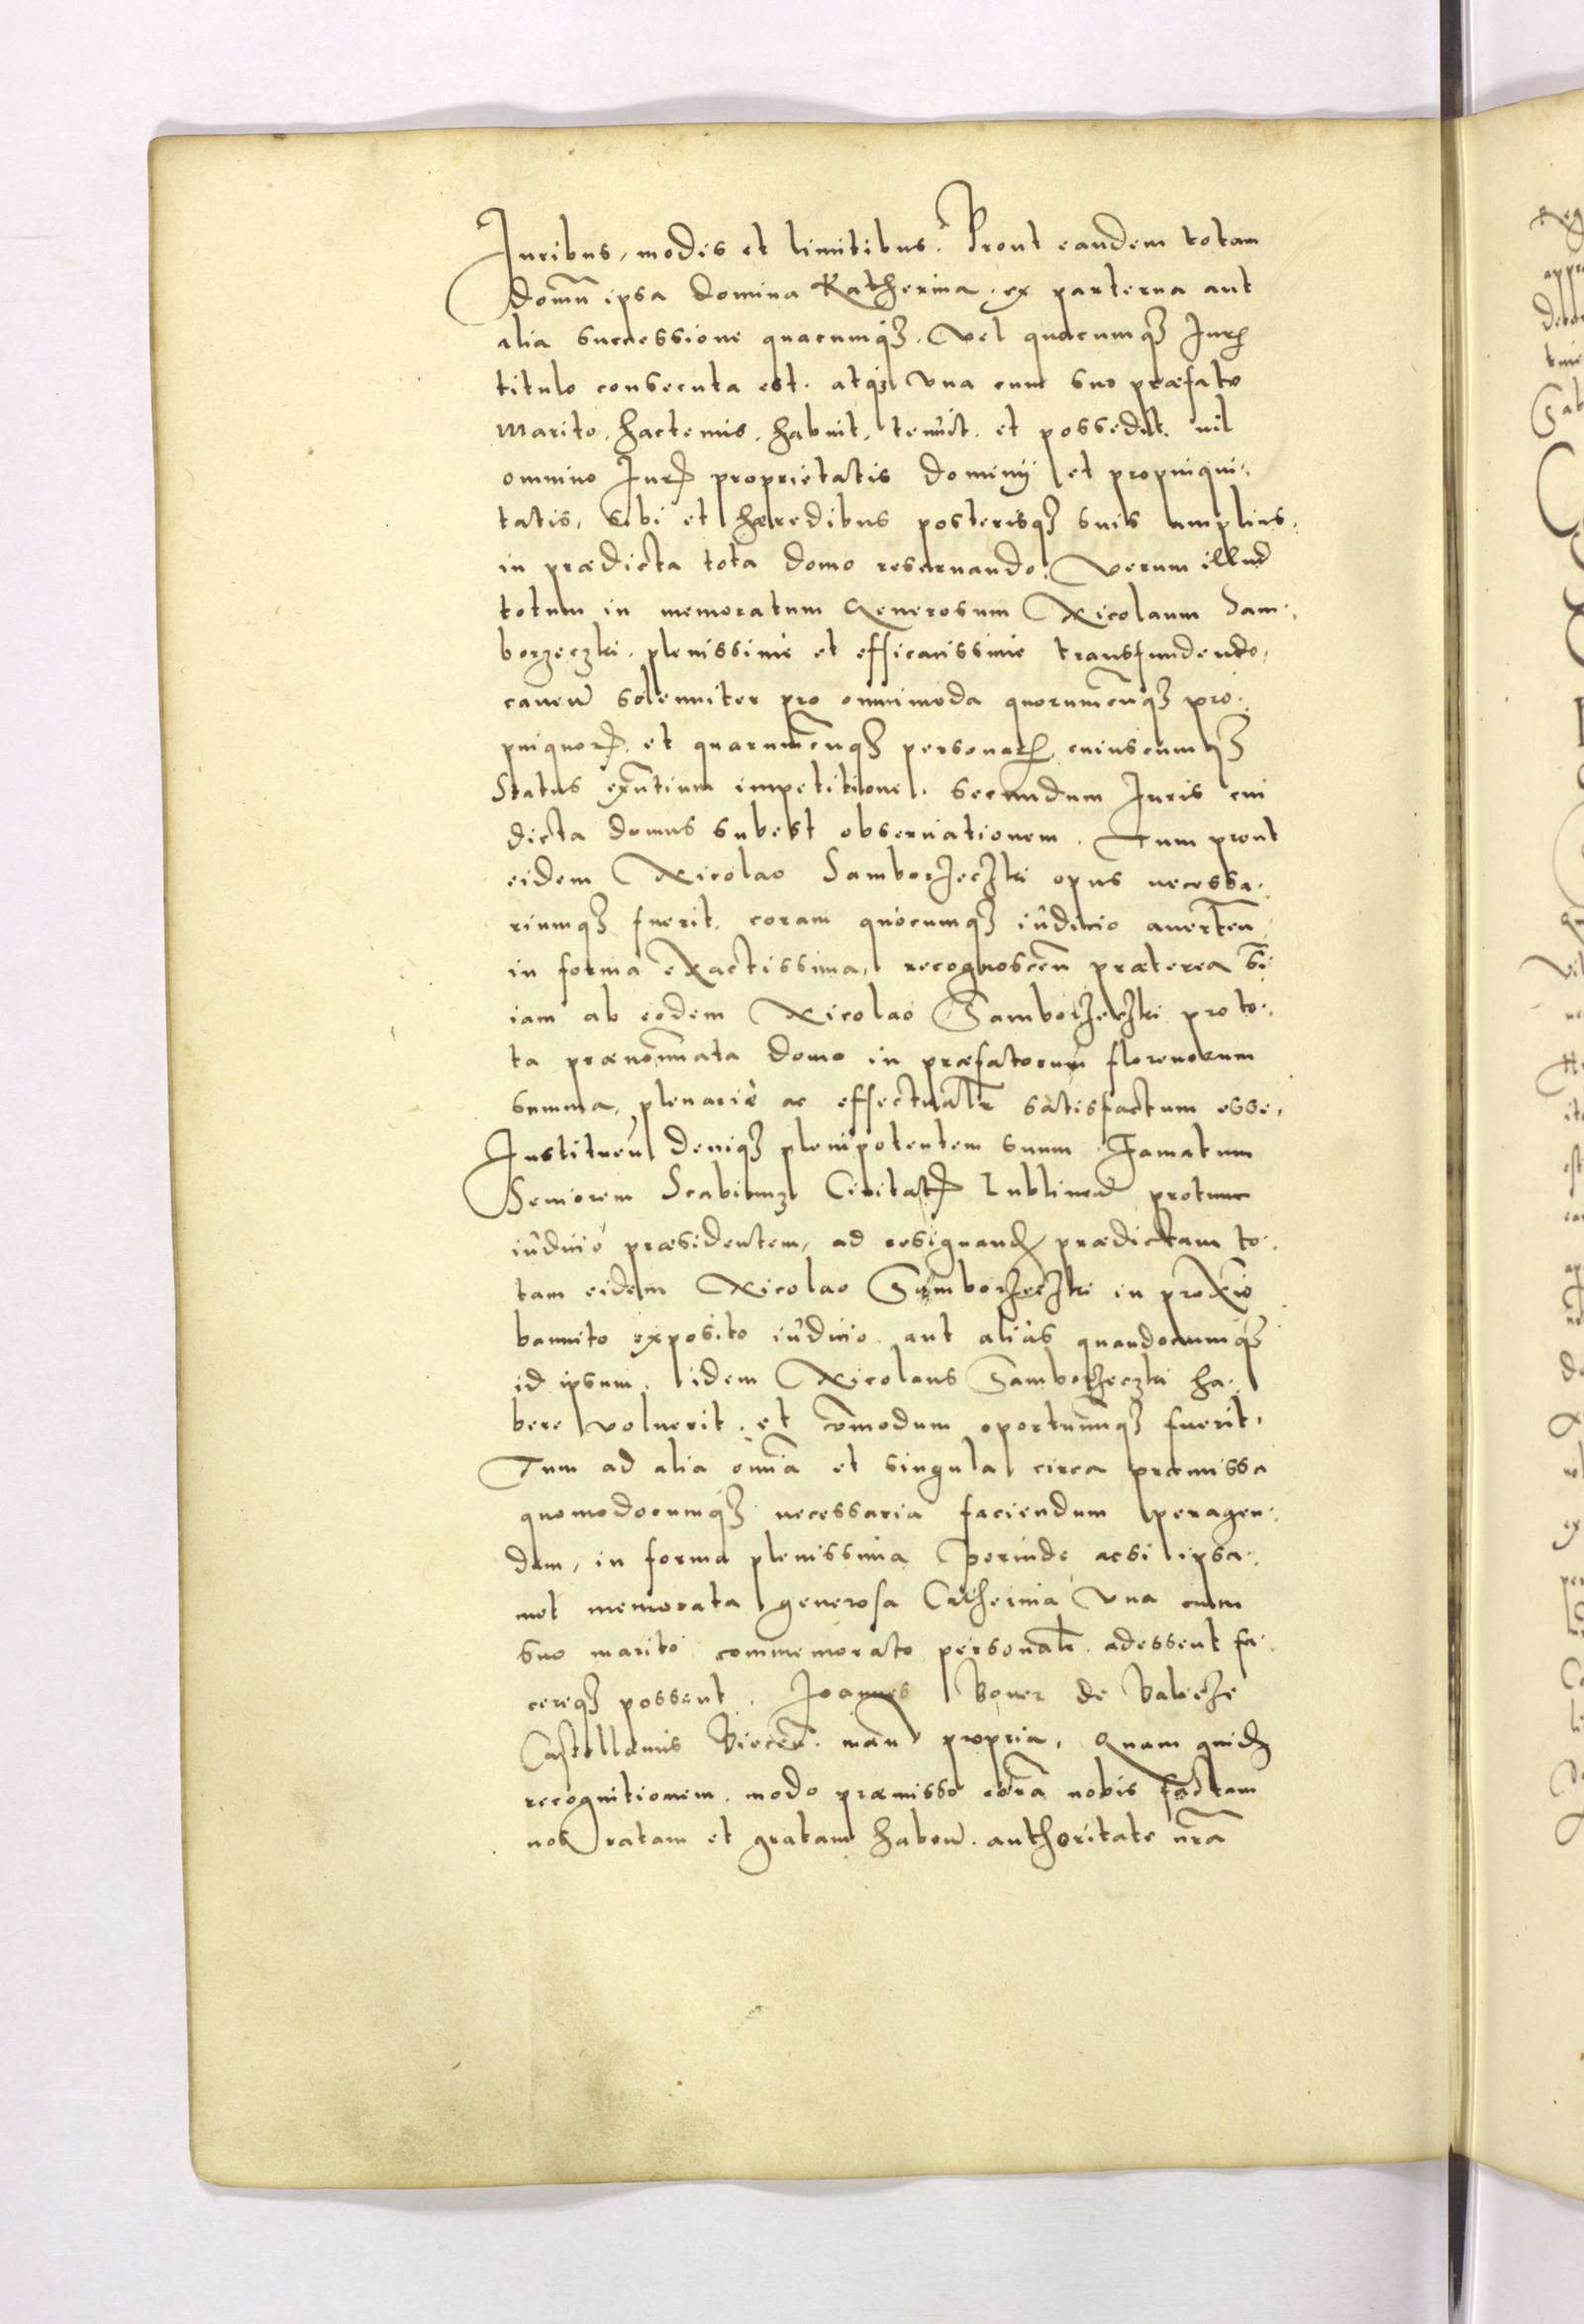 Iuribus, modis et limitibus. Prout eandem totam
domũ ipsa domina Katherina. ex parterna aut
alia successione quacumq3. Vel quocumq3 Iurꝭ
titulo consecuta est. atq3 vna cum suo præfato
Marito, hactenus. habuit, tenuit. et possedit. nil
omnino Iurꝭ proprietatis dominij et propinqui:
tatis, sibi et hæredibus posterisq3 suis amplius.
in prædicta tota domo reseruando. Verum illud
totum in memoratum Generosum Nicolaum Sam:
borzeczki. plenissime et efficacissime transfundendo,
cauen̄ solenniter pro omnimoda quorumcunq3 pro:
pinquorꝭ. et quarumcunq3 personarꝝ cuiuscumq3
Status exn̄tium impetitione. secundum Iuris cui
dicta domus subest obseruationem. Tum prout
eidem Nicolao Samborzeczki opus necessa:
riumq3 fuerit. coram quocumq3 iudicio auerten̄
in forma exactissima, recognoscen̄ præterea si:
iam ab eodem Nicolao Samborzeczki pro to:
ta prænom̄nata domo in præfatorum florenorum
summa, plenarie ac effectualr̄ satisfactum esse.
Instituen̄ deniq3 plenipotentem suum Famatum
Seniorem Scabinum Ciuitatꝭ Lublinen̄ protunc
iudicio præsidentem, ad resignandꝭ prædictam to:
tam eidem Nicolao Samborzeczki in proxio
bannito exposito iudicio. aut alias quandocumq3
id ipsum. idem Nicolaus Samborzeczki ha:
bere voluerit. et cōmodum oportunūq3 fuerit.
Tum ad alia om̄ia et singula circa præmissa
quomodocumq3 necessaria faciendum peragen:
dum, in forma plenissima perinde acsi ipsa:
met memorata generosa Catherina vna cum
suo marito commemorato personalr̄. adessent fa:
cereq3 possent. Joannes Boner de Balicze
Castellanus Biecen̄. manu propria. Quam quidꝭ
recognitionem. modo præmisso corā nobis factam
nos ratam et gratam haben̄. authoritate nr̄a